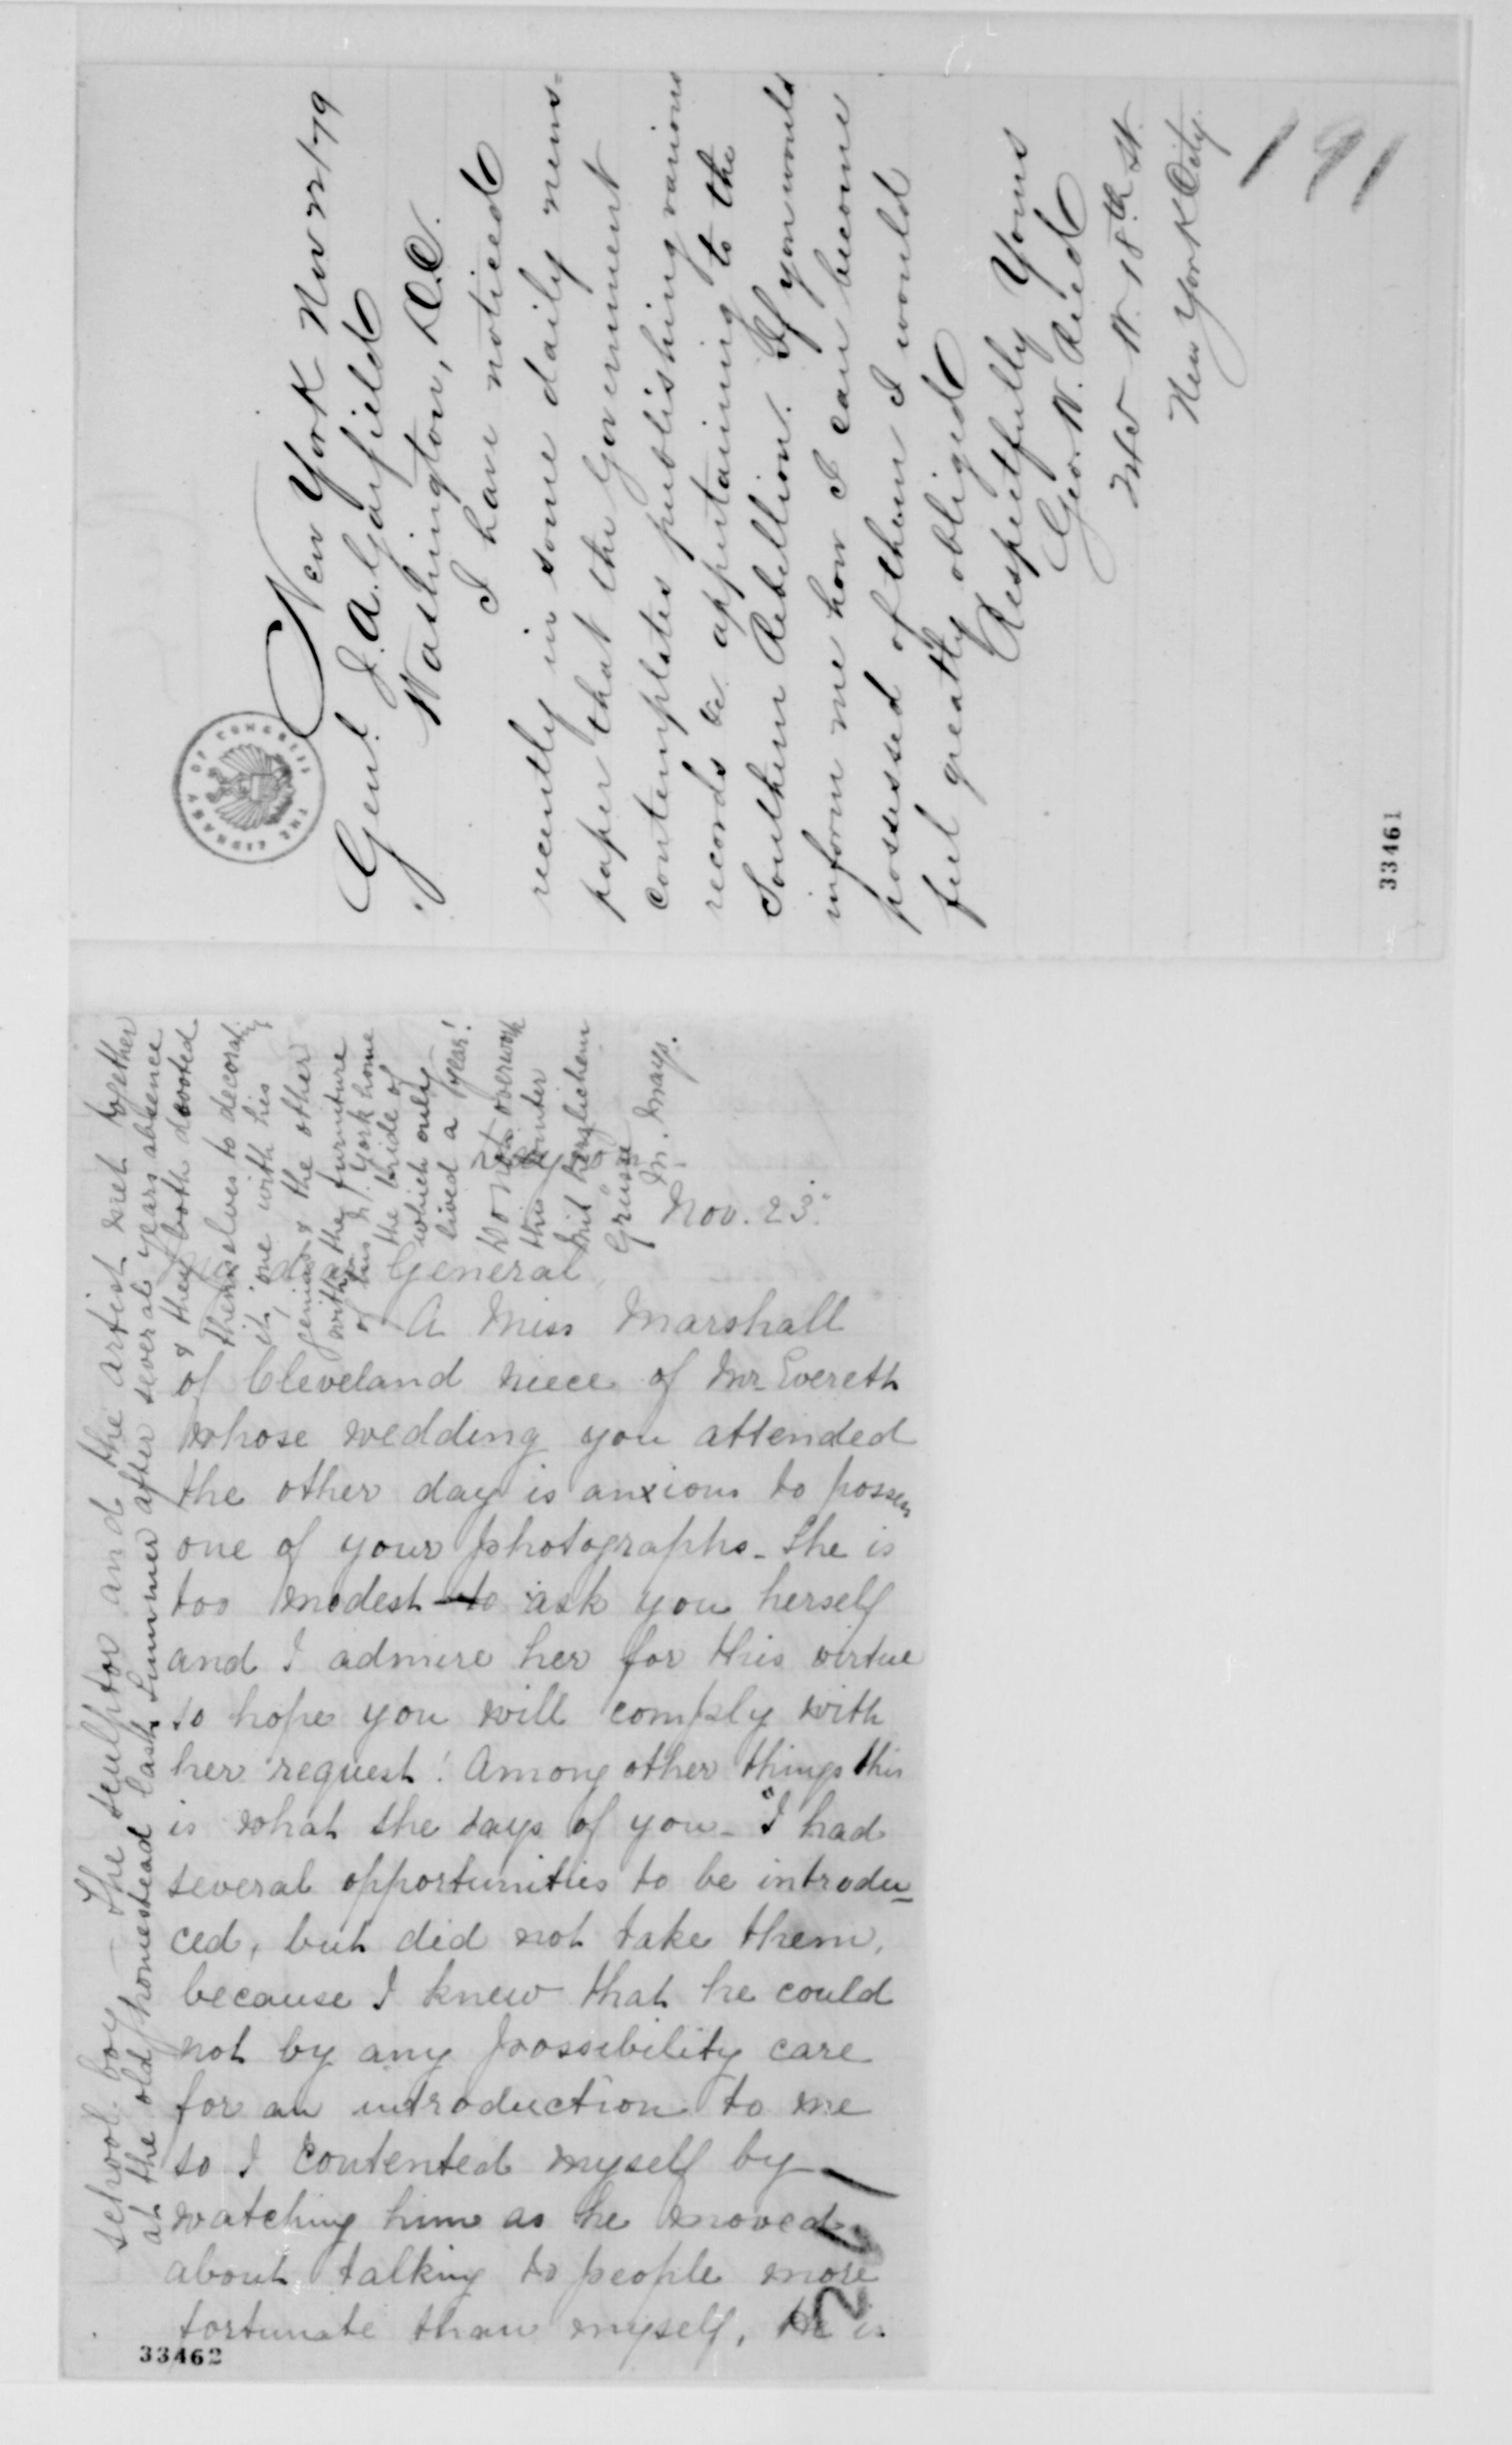 New York Nov 22/79
Genl J. A. Garfield
Washington, D.C.
I have noticed
recently in some daily news-
paper that the Government
contemplates publishing various
records &c appertaining to the
Southern Rebellion. If you would
inform me how I can become
possessed of them I would
feel greatly obliged
Respectfully Yours
Geo. W. Reed
W. 18th St.
New York City.
191
THE LIBRARY OF CONGRESS
33461
Nov. 23.
General,
A Miss Marshall
of Cleveland niece of Mr Evereth
whose wedding you attended
the other day is anxious to possess
one of your photographs - She is
too modest to ask you herself
and I admire her for this virtue
so hope you will comply with
her request! Among other things this
is what she says of you - "I had
several opportunities to be introdu-
ced, but did not take them,
because I knew that he could
not by any possibility care
for an introduction to me
so I contented myself by
watching him as he moved
about talking to people more
fortunate than myself, He is
33462
school boy - The sculptor and the artist met together
at the old homestead last summer after several years absence
& they both devoted
themselves to decorating
it, one with his
genius & the other
with the furniture
of his N. York home
the bride of
which only
lived a year!
Do not overwork
this winter
Mit herzlichem
Grüsse
M. Mays.